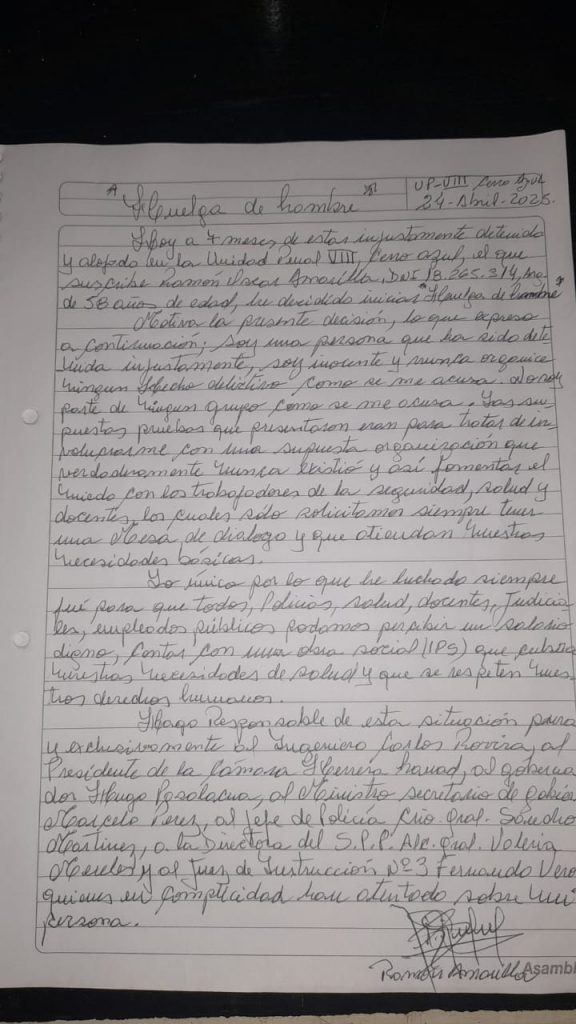 UP-VIII Cerro Azul
"Huelga de hambre" 24-Abril-2025.
Hoy a 7 meses de estar injustamente detenido
y alojado en la Unidad Penal VIII, Cerro azul, el que
suscribe Ramón Amarilla, DNI 18.265.314, Arg.
de 58 años de edad, he decidido iniciar "Huelga de hambre"
Motiva la presente decisión, lo que expreso
a continuación; Soy una persona que ha sido dete
nida injustamente, soy inocente y nunca organice
ningun Hecho delictivo como se me acusa. No soy
parte de ningun grupo como se me acusa. Las su
puestas pruebas que presentaron eran para tratar de in
volucrarme con una supuesta organización que
verdaderamente nunca existió y así fomentar el
miedo con los trabajadores de la seguridad, salud y
docentes, los cuales sólo solicitamos siempre tener
una Mesa de dialogo y que atiendan nuestras
necesidades básicas.
Lo único por lo que he luchado siempre
fué para que todos, Policias, salud, docentes, Judicia
les, empleados públicos podamos percibir un salario
digno, contar con una obra social (IPS) que cubra
nuestras necesidades de salud y que se respeten nues
tros derechos humanos.
Hago Responsable de esta situación pura
y exclusivamente al Ingeniero Carlos Rovira, al
Presidente de la Cámara Herrera Ahuad, al goberna
dor Hugo Pasalacua, al Ministro secretario de gobier
Marcelo Perez, al Jefe de Policía Crio. Gral. Sandro
Martinez, a la Directora del S.P.P. Alc. Gral. Valeria
Mereles y al Juez de Instrucción Nº3 Fernando Vero
quienes en Complicidad han atentado sobre mi
persona.
Ramón Amarilla
Asambl